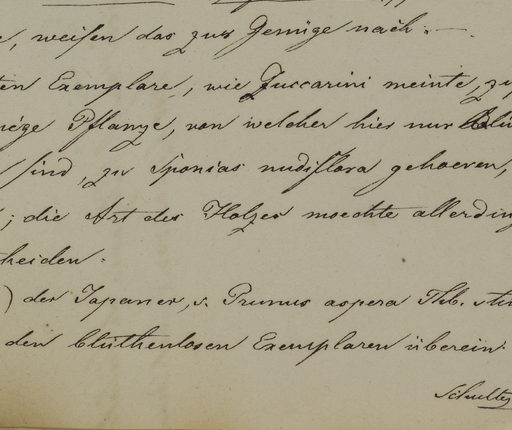 weisen das zur Genüge nach. —
ten Exemplare, wie Zuccarini meinte, zu
Pflanze, von welcher hier nur
sind, zu Sponias nudiflora gehoeren,
; die Art des Holzes moechte allerdin
heiden.
) der Japaner, s. Prunus aspera Thb. sti
den blüthenlosen Exemplaren überein.
Schultes